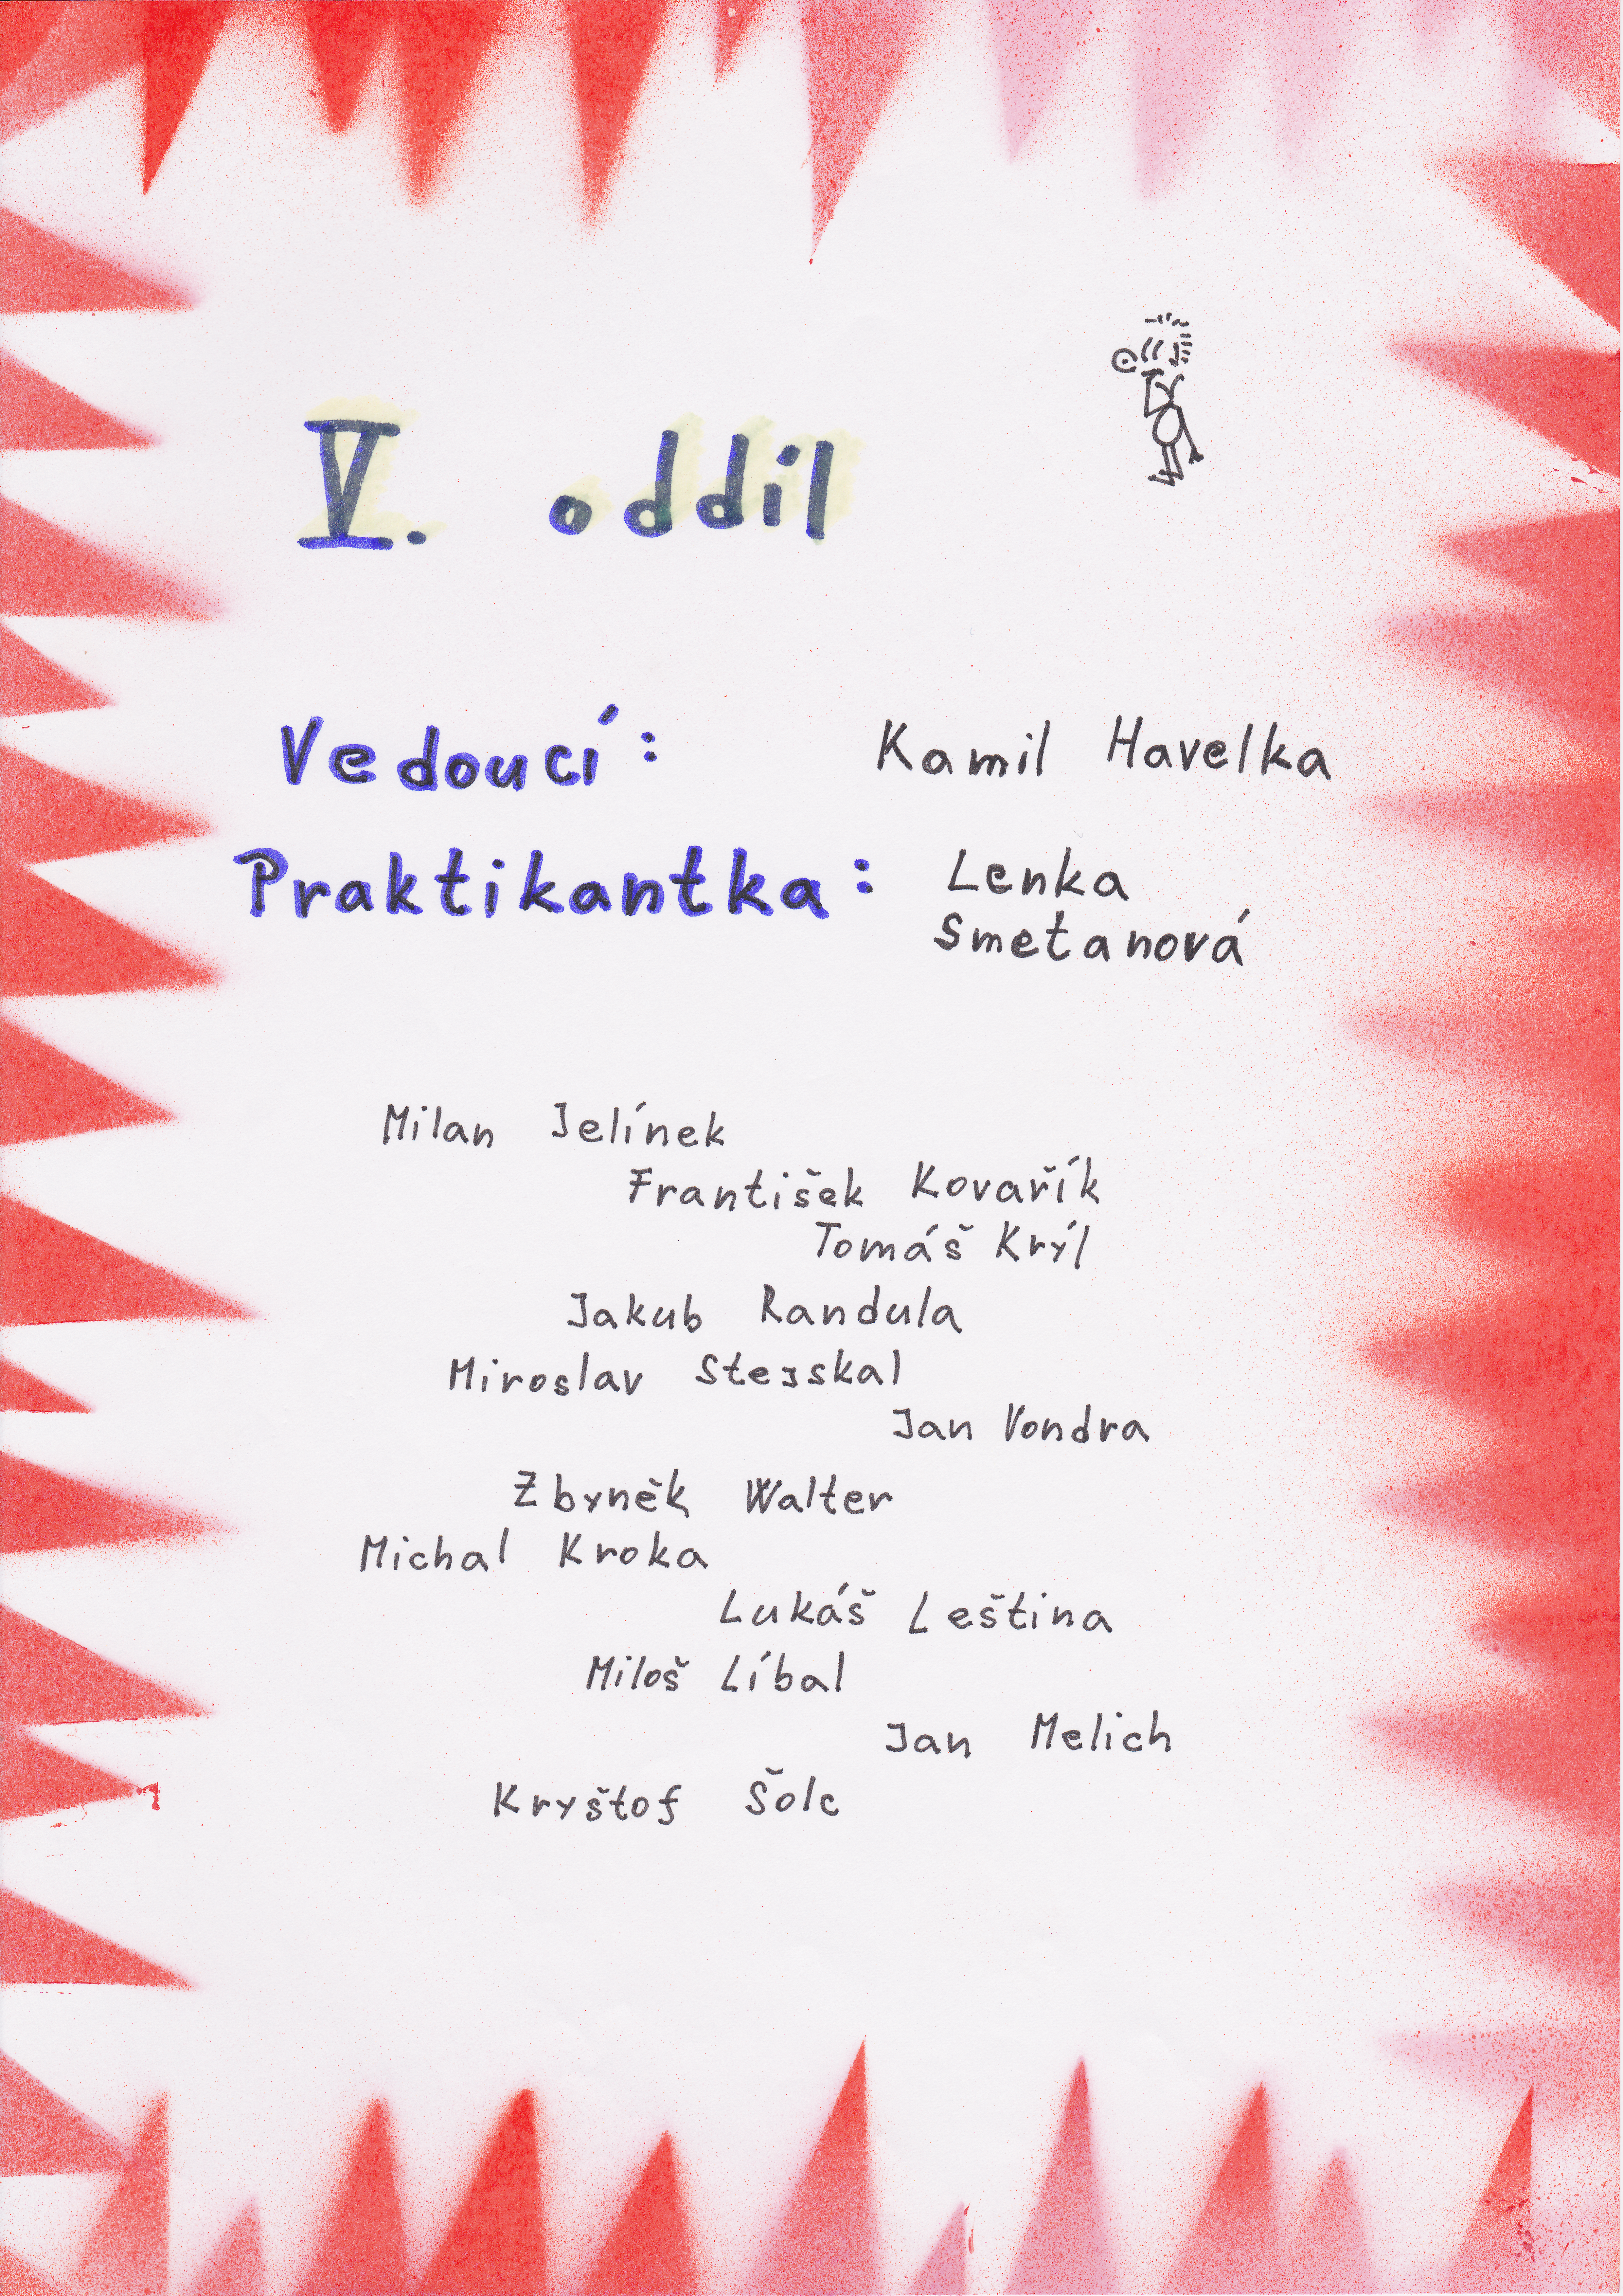 V. oddíl
Vedoucí: Kamil Havelka
Praktikantka: Lenka
Smetanová
Milan Jelínek
František Kovařík
Tomáš Krýl
Jakub Randula
Miroslav Stejskal
Jan Vondra
Zbyněk Walter
Michal Kroka
Lukáš Leština
Miloš Líbal
Jan Melich
Kryštof Šolc